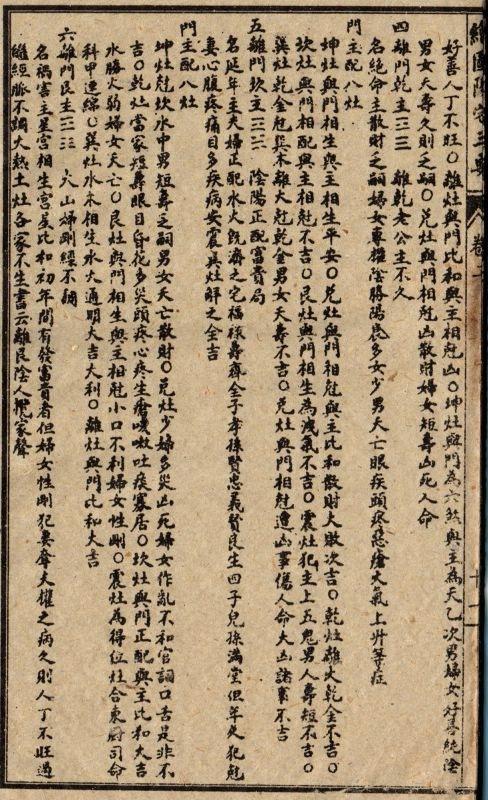 繪圖陽宅三要 卷二
好善人丁不旺○離灶與門比和與主相尅凶○坤灶與門為六煞與主為天乙次男婦女好善純陰
男女夭壽久則乏嗣○兌灶與門相尅凶散財婦女短壽凶死人命
四離門乾主☲☰ 離乾老公主不久
名絕命主散財乏嗣婦女專權陰勝陽衰多女少男夭亡眼疾頭疼惡瘡火氣上升等症
門主配八灶
坤灶與門相生與主相生平安○兌灶與門相尅與主比和散財大敗次吉○乾灶離火乾金不吉○
坎灶與門相配與主相尅不吉○艮灶與門相生為洩氣不吉○震灶犯主上五鬼男人壽短不吉○
巽灶乾金尅巽木離火尅乾金男女夭壽不吉○兌灶與門相尅遭凶事傷人命大凶諸事不吉
五離門坎主☲☵ 陰陽正配富貴局
名延年主夫婦正配水火既濟之宅福祿壽齊全子孝孫賢忠義賢良生四子兒孫滿堂但年久犯尅
妻心腹疼痛目多疾病安震巽灶解之全吉
門主配八灶
坤灶尅坎水中男短壽乏嗣男女夭亡散財○兌灶少婦多災凶死婦女作亂不和官詞口舌是非不
吉○乾灶當家短壽眼目昏花多災頭疼心疼生瘡咳嗽吐痰寡居○坎灶與門正配與主比和大吉
水勝火弱婦女夭亡○艮灶與門相生與主相尅小口不利婦女性剛○震灶為得位灶合東厨司命
科甲連綿○巽灶水木相生木火通明大吉大利○離灶與門比和大吉
六離門艮主☲☶ 火山婦剛經不調
名禍害主星宮相生宮星比和初年間有發富貴者但婦女性剛犯妻奪夫權之病久則人丁不旺過
繼經脈不調火熱土灶各家不生書云離艮陰人攪家聲